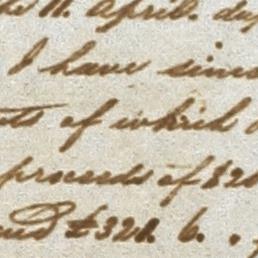 11. April.
I have
of which
proceeds of $20
$320. 6.